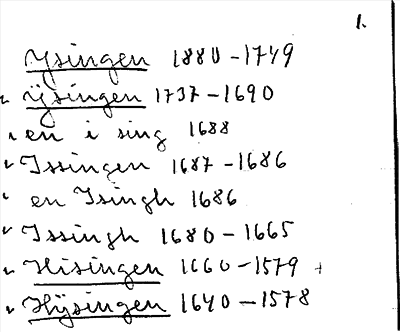 1.
Ysingen 1880-1749
ÿsingen 1737-1690
en i sing 1688
Issingen 1687-1686
en Isingh 1686
Issingh 1680-1665
Hisingen 1660-1579 +
Hÿsingen 1640-1578